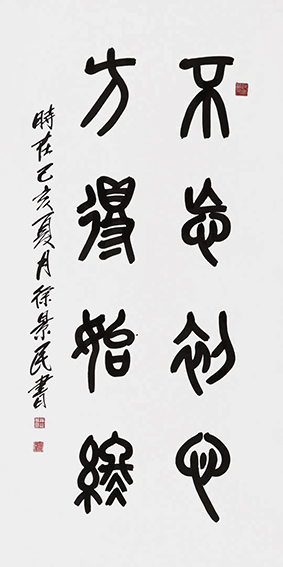 不忘初心
方得始終
時在己亥夏月徐景民書